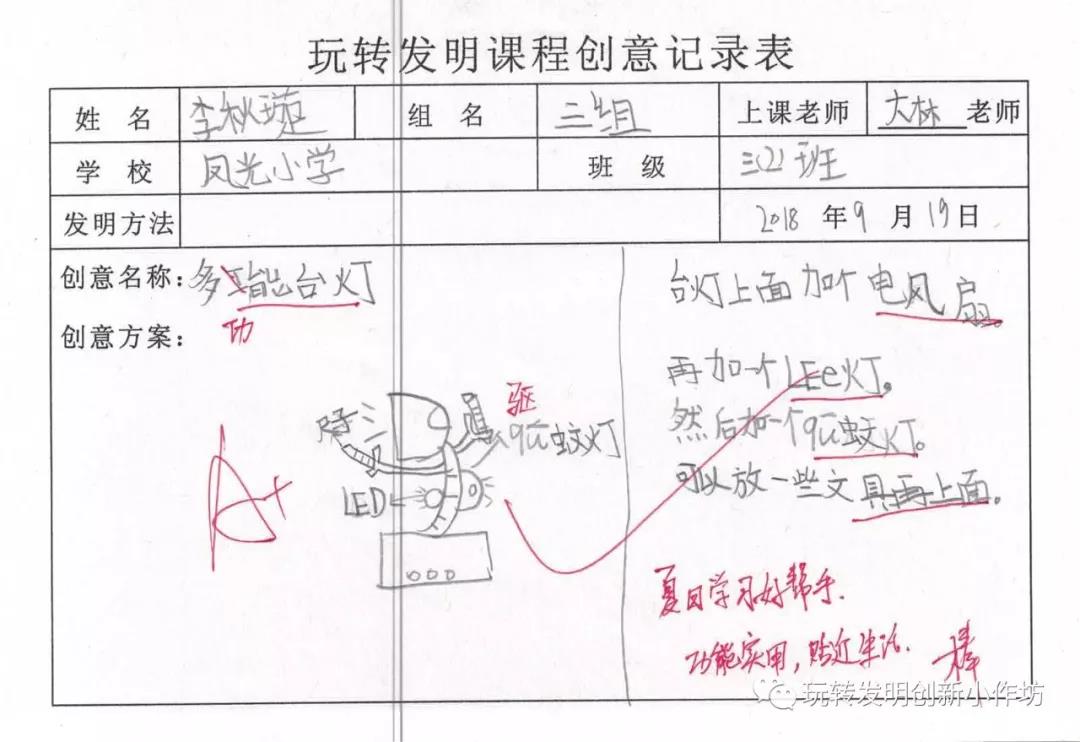 玩转发明课程创意记录表
姓名 李秋璇 组名 三组 上课老师 大林 老师
学校 凤光小学 班级 三(2)班
发明方法 2018 年 9 月 19 日
创意名称: 多工能台灯
功
创意方案:
LED
驱
qū蚊灯
A+
台灯上面加个电风扇。
再加一个LEe灯。
然后加一个qū蚊灯。
可以放一些文具再上面。
夏日学习好帮手.
功能实用,贴近生活.
玩转发明创新小作坊